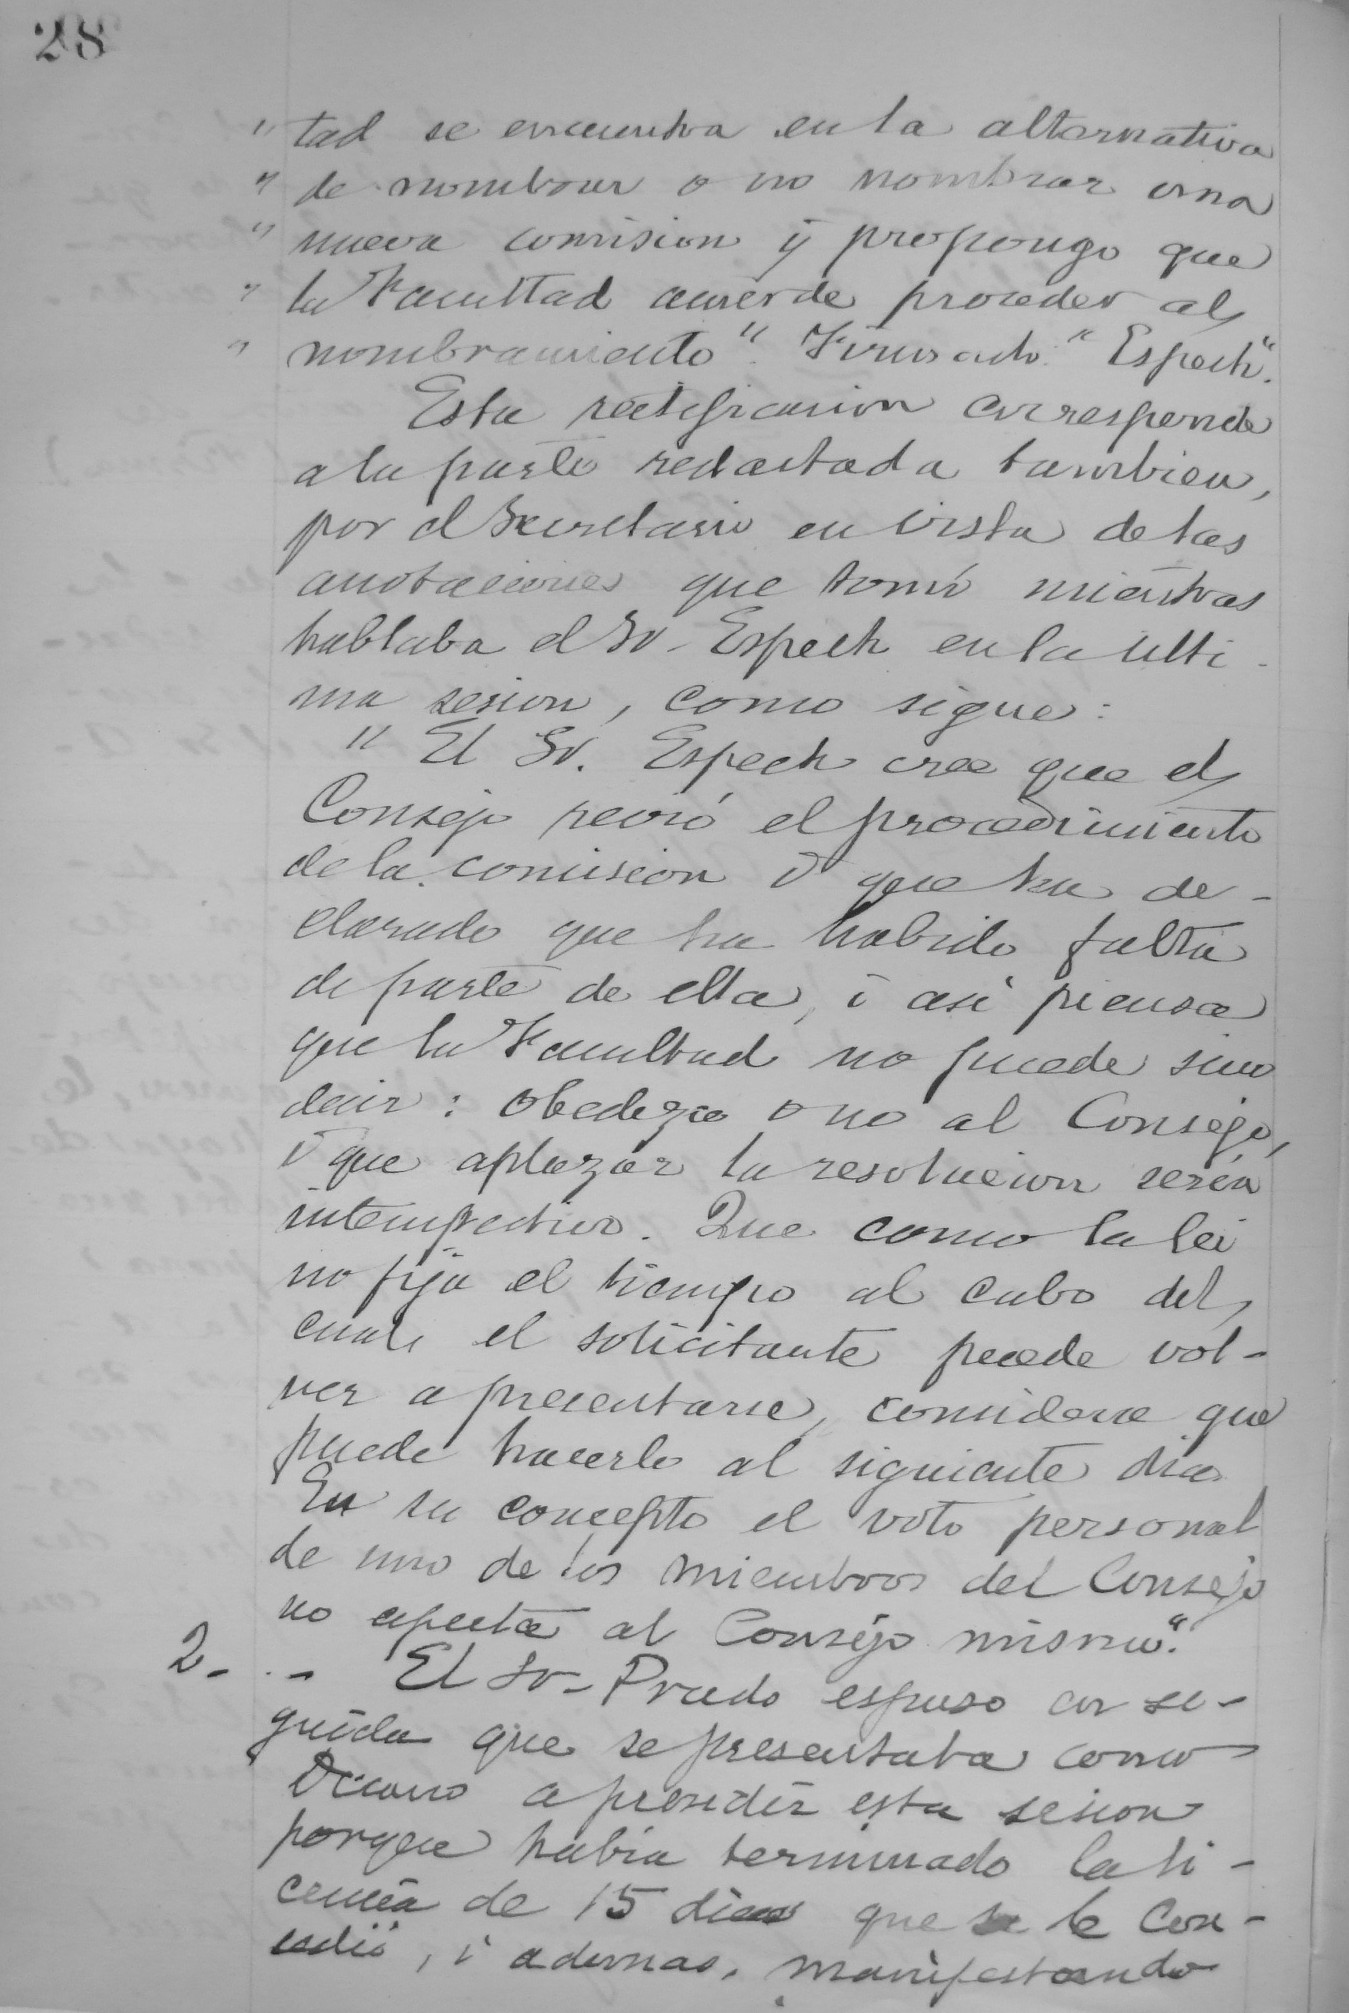 28
" tad se encuentra en la alternativa
" de nombrar o no nombrar una
" nueva comision y propongo que
" la Facultad acuerde proceder al
" nombramiento". Firmado: "Espech".
Esta rectificacion corresponde
a la parte redactada tambien,
por el Secretario en vista de las
anotaciones que tomó miéntras
hablaba el Sr. Espech en la ulti-
ma sesion, como sigue:
"El Sr. Espech cree que el
Consejo revió el procedimiento
de la comision i que ha de-
clarado que ha habido falta
de parte de ella, i así piensa
que la Facultad no puede sino
decir: obedezco o no al Consejo,
i que aplazar la resolucion sería
intempestivo. Que como la lei
no fija el tiempo al cabo del
cual el solicitante puede vol-
ver a presentarse, considera que
puede hacerlo al siguiente dia.
En su concepto el voto personal
de uno de los miembros del Consejo
no afecta al Consejo mismo."
2- - El Sr. Prado espuso en se-
guida que se presentaba como
Decano a presidir esta sesion
porque habia terminado la li-
cencia de 15 dias que se le con-
cedió, i ademas, manifestando